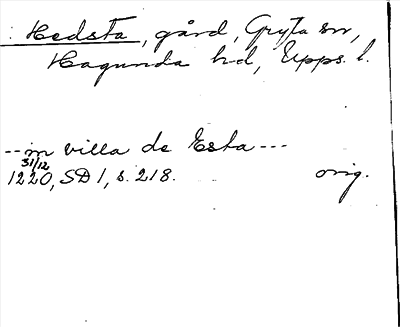 : Hedsta, gård, Gryta sn,
Hagunda hd, Upps. l.
--- in villa de Esta ---
31/12
1220, SD 1, s. 218. orig.